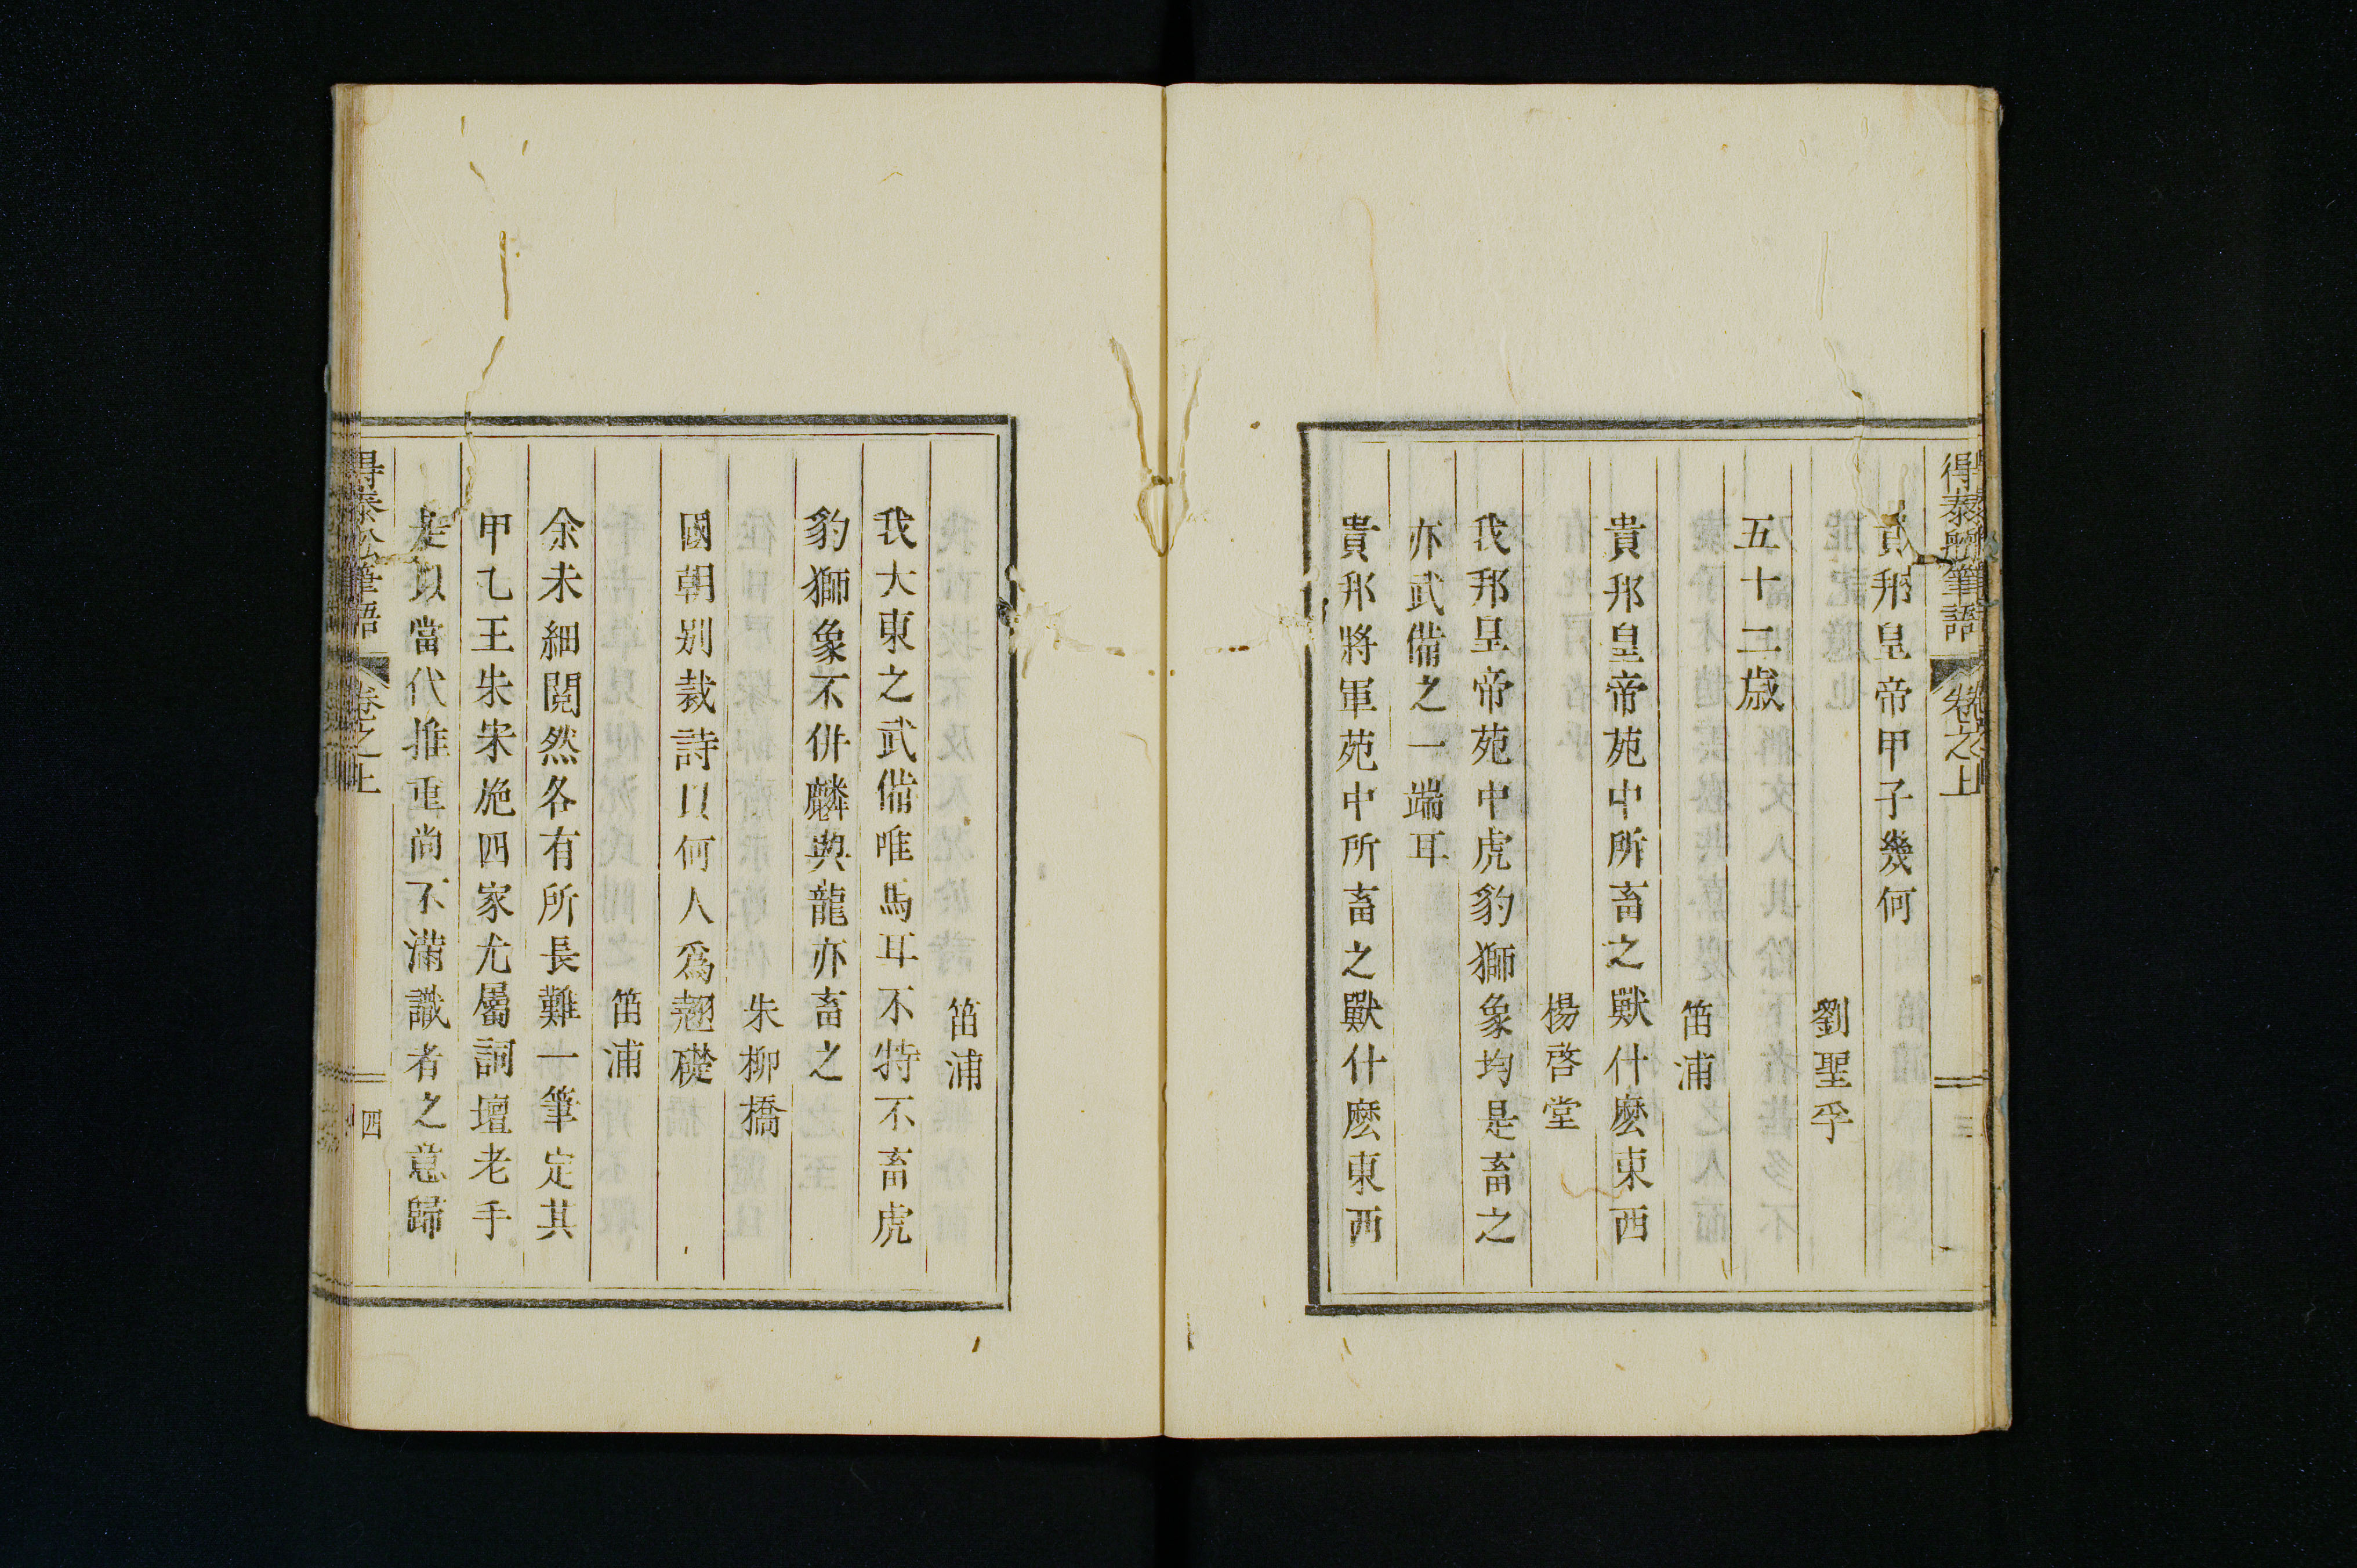 得泰船筆語 卷之上 三
貴邦皇帝甲子幾何
劉聖孚
五十二歳
笛浦
貴邦皇帝苑中所畜之獸什麽東西
楊啓堂
我邦皇帝苑中虎豹獅象均是畜之
亦武備之一端耳
貴邦將軍苑中所畜之獸什麽東西
笛浦
我大東之武備唯馬耳不特不畜虎
豹獅象不併麟與龍亦畜之
朱柳橋
國朝别裁詩以何人爲翹礎
笛浦
余未細閲然各有所長難一筆定其
甲乙王朱宋施四家尤屬詞壇老手
是以當代推重尚不滿識者之意歸
得泰船筆語 卷之上 四